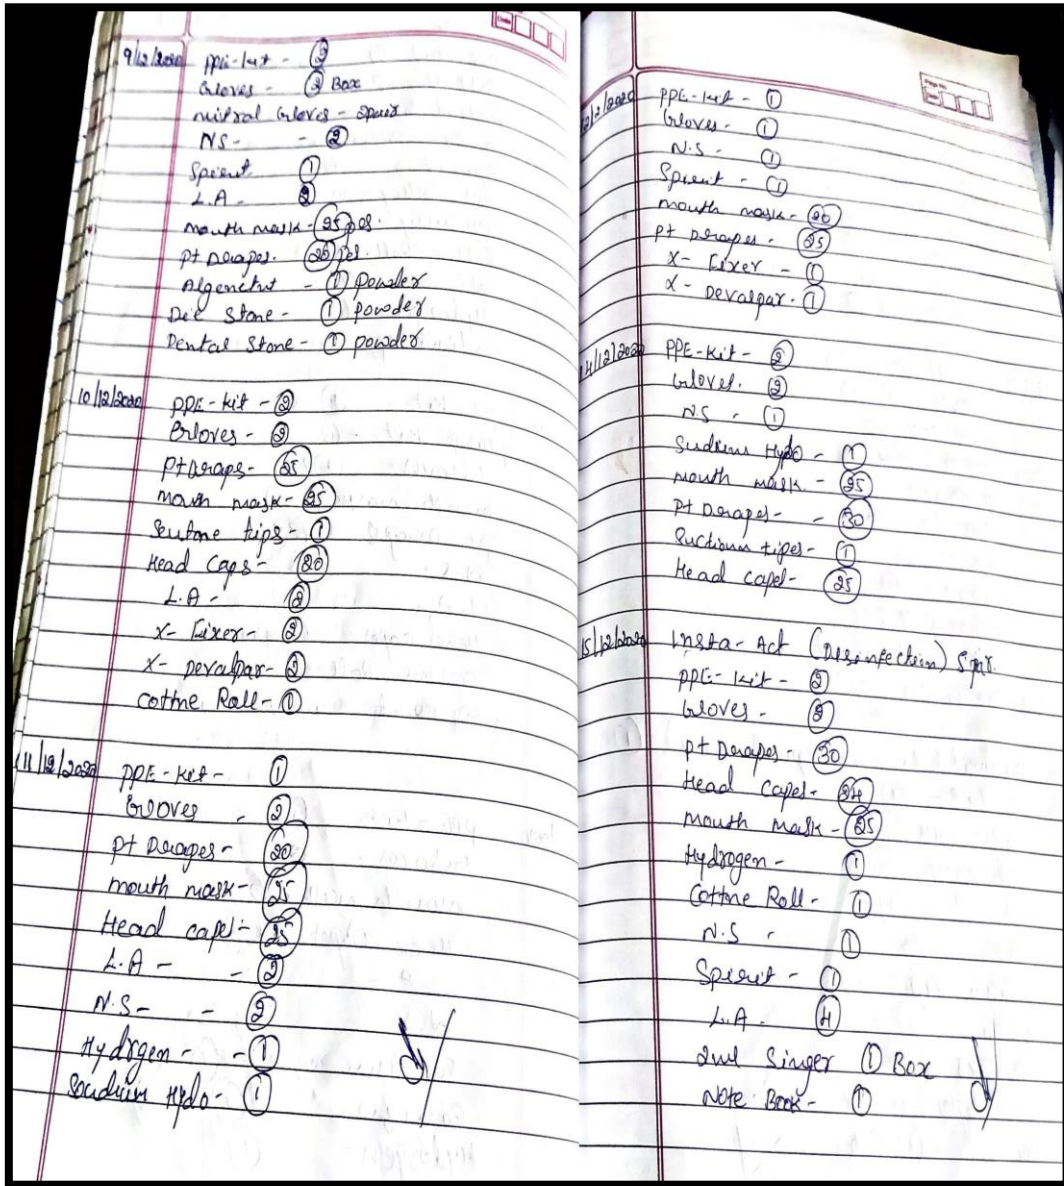 9/12/2020 PPE-kit - 2
Gloves - 2 Box
nitral Gloves - 2pair
NS - - 2
Spirut 1
L.A - 2
mouth mask - 25 pcs.
Pt Drapes. 25 pcs.
Algenctut - 1 powder
Die Stone - 1 powder
Dental Stone - 1 powder
10/12/2020 PPE-kit - 2
Gloves - 2
Pt Draps - 25
Mouth mask - 25
Seutone tips - 1
Head Caps - 20
L.A - 2
X- Fixer - 2
X- Devalpar - 2
Cottne Roll - 1
11/12/2020 PPE-kit - 1
Gloves - 2
Pt Drapes - 20
mouth mask - 25
Head capes - 25
L.A - - 2
N.S - - 2
Hydrgen - - 1
Soudium Hydo - 1
12/2020 PPE-kit - 1
Gloves - 1
N.S - 1
Spirut - 1
mouth mask - 20
Pt Drapes - 25
X- Fixer - 1
X- Devalpar - 1
14/12/2020 PPE-kit - 2
Gloves. 2
NS - 1
Sudium Hydo - 1
mouth mask - 25
Pt Drapes - - 30
Suctionn tipes - 1
Head capes - 25
15/12/2020 Insta- Act (Disinfection) Spr.
PPE-kit - 2
Gloves - 2
Pt Drapes - 30
Head Capes - 24
mouth Mask - 25
Hydrogen - 1
Cottne Roll - 1
N.S - 1
Spirit - 1
L.A - 4
2ml Singer 1 Box
Note Book - 1